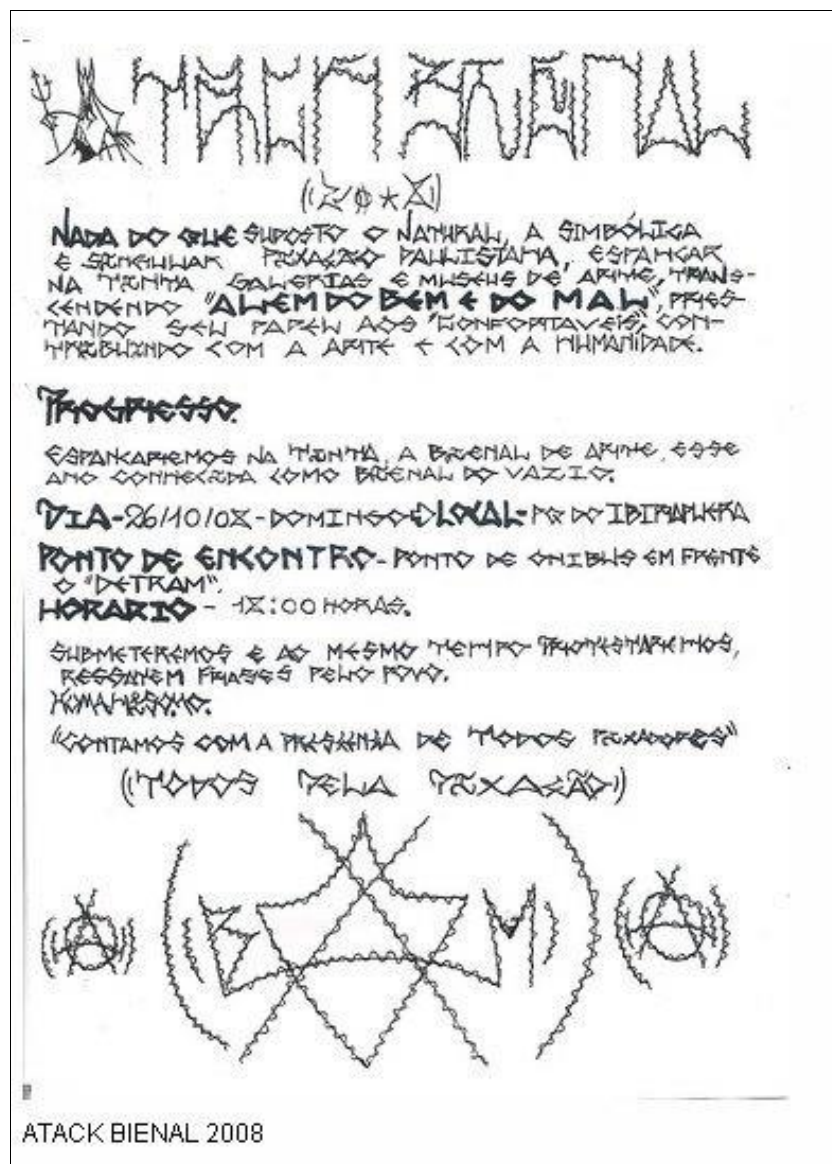 ATACK BIENAL
((20*8))
NADA DO QUE SUPOSTO O NATURAL, A SIMBÓLICA
E SINGULAR PIXAÇÃO PAULISTANA, ESPANCAR
NA TINTA GALERIAS E MUSEUS DE ARTE, TRANS-
CENDENDO "ALEM DO BEM E DO MAL", PRES-
TANDO SEU PAPEL AOS "CONFORTAVEIS", CON-
TRIBUINDO COM A ARTE E COM A HUMANIDADE.
PROGRESSO.
ESPANCAREMOS NA TINTA, A BIENAL DE ARTE, ESSE
ANO CONHECIDA COMO BIENAL DO VAZIO.
DIA-26/10/08-DOMINGO LOCAL-PQ DO IBIRAPUERA
PONTO DE ENCONTRO-PONTO DE ONIBUS EM FRENTE
O "DETRAM".
HORARIO - 18:00 HORAS.
SUBMETEREMOS E AO MESMO TEMPO PROTESTAREMOS,
RESSALTEM FRASES PELO POVO.
"CONTAMOS COM A PRESENÇA DE TODOS PIXADORES"
((TODOS PELA PIXAÇÃO))
ATACK BIENAL 2008